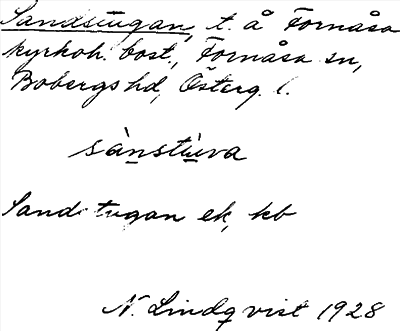 Sandstugan, t. å Fornåsa
kyrkoh. bost., Fornåsa sn,
Bobergs hd, Österg. l.
sànstu̲va
Sandstugan ek, kb
N. Lindqvist 1928